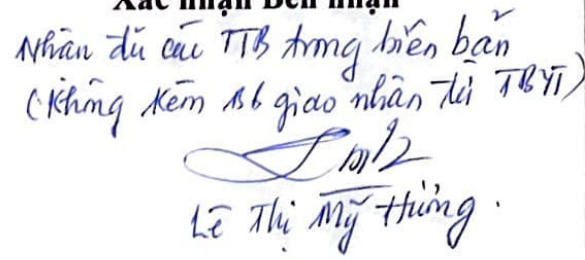 Xác nhận Bên nhận
Nhận đủ các TTB trong biên bản
(Không kèm BB giao nhận từ TBYT)
Lê Thị Mỹ Hưng.